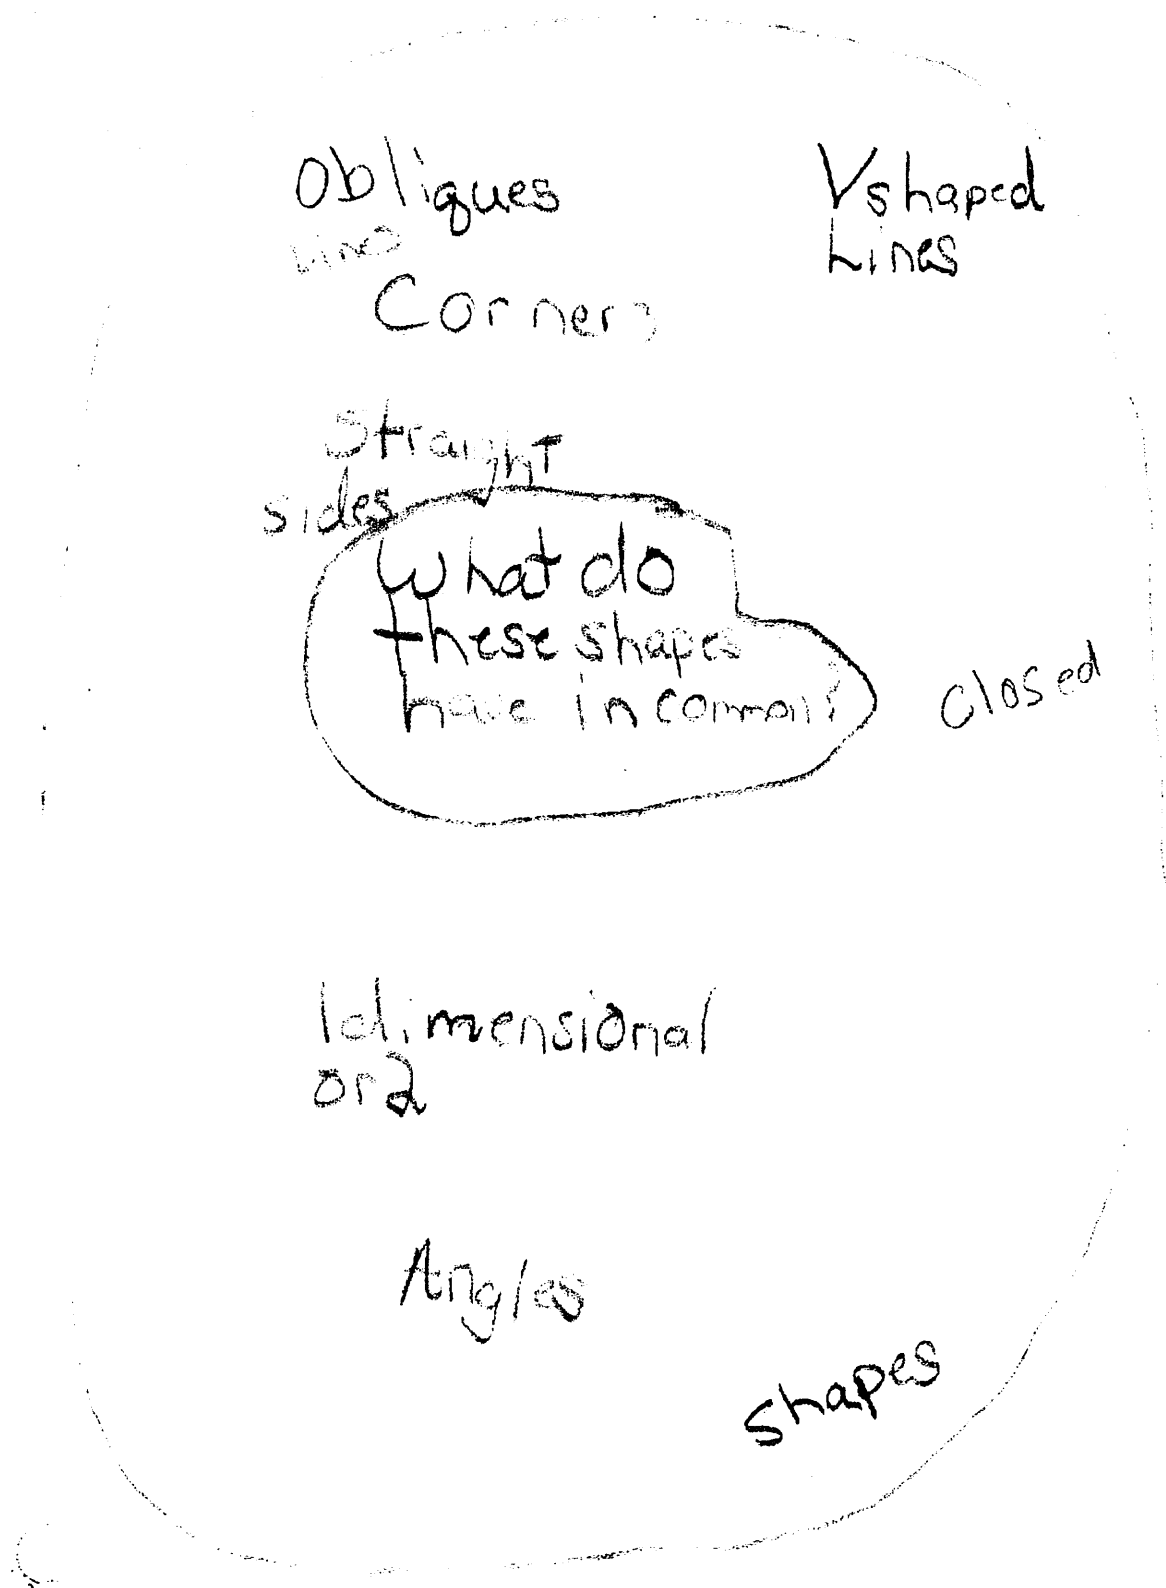 Obliques
Lines
Vshaped
Lines
Corners
Straight
sides
What do
these shapes
have in common?
closed
1dimensional
or2
Angles
shapes